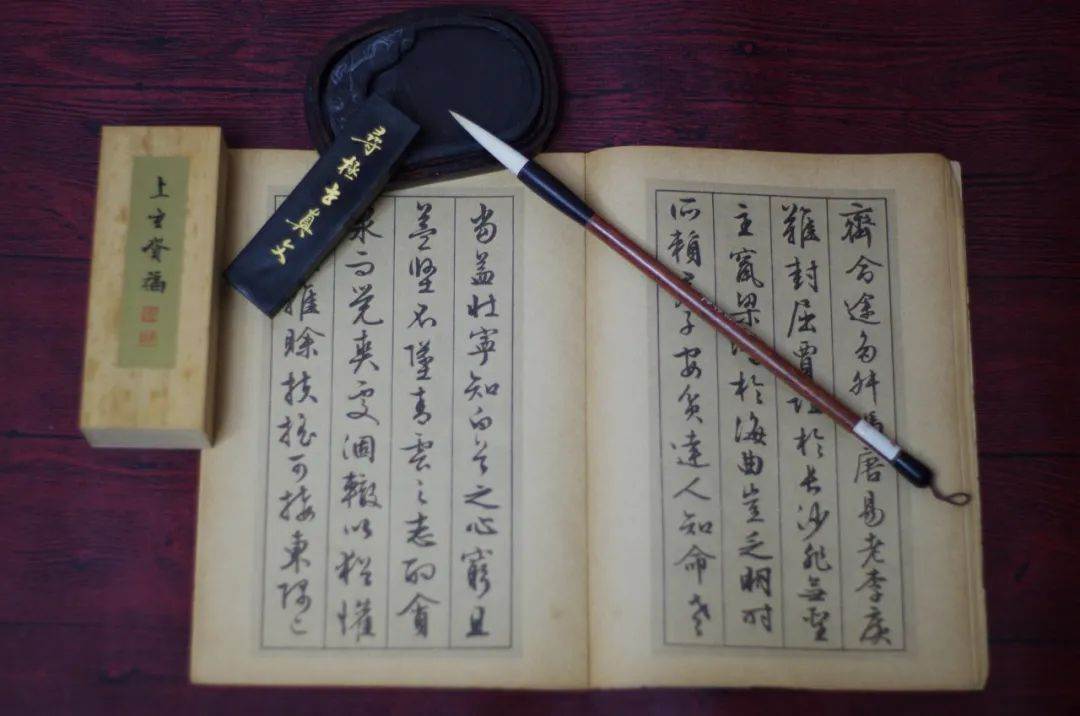 齊命途多舛馮唐易老李廣
難封屈賈誼於長沙非無聖
主竄梁鴻於海曲豈乏明時
所賴君子安貧達人知命老
當益壯寧知白首之心窮且
益堅不墜青雲之志酌貪
泉而覺爽處涸轍以猶懽
雖賒扶搖可接東隅已
尋極真文
上主福